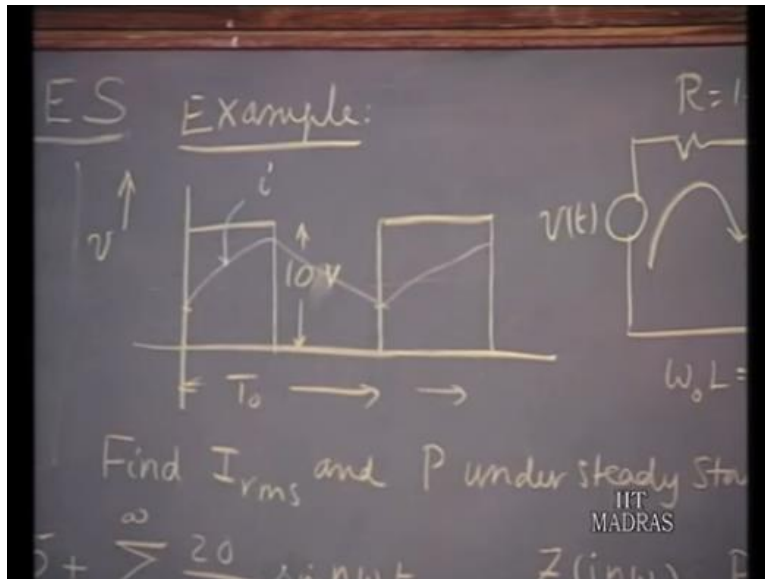 ES Example:
R= 1
i
v
10 V
v(t)
T₀
ω₀L=
Find Iᵣₘₛ and P under steady
IIT
MADRAS
∞
5 + Σ 20 sin nωt
Z(jnω)